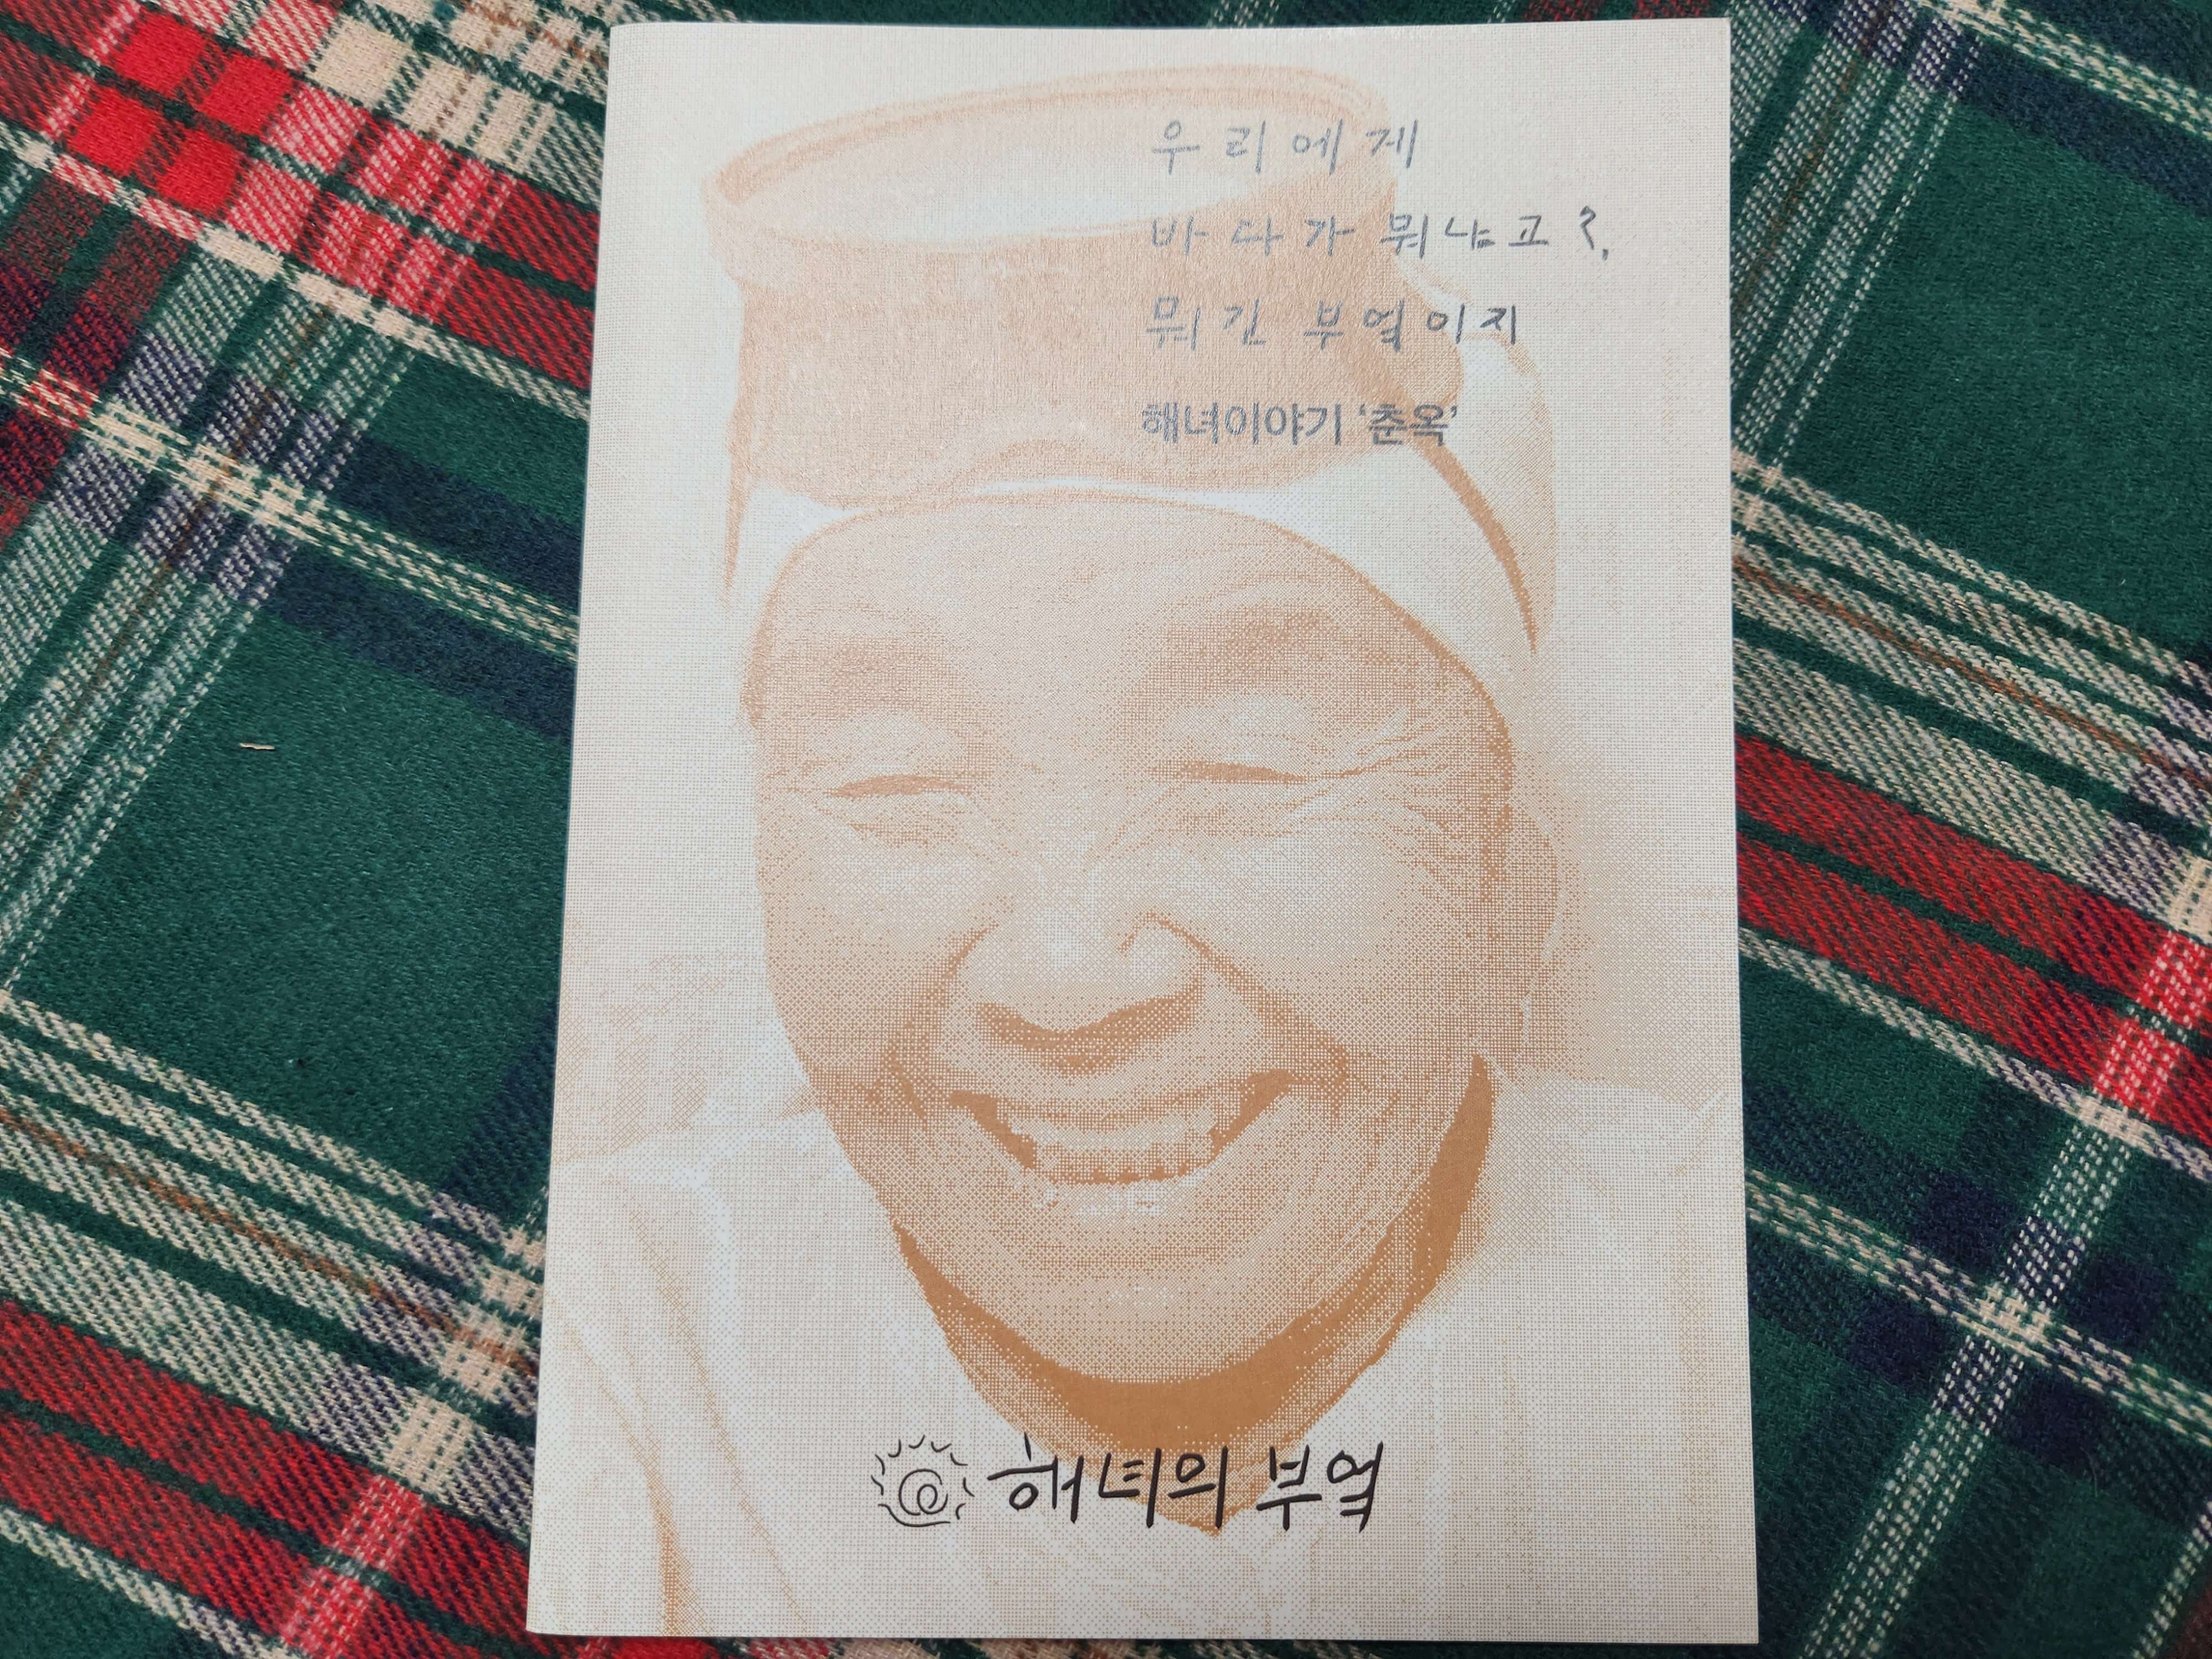 우리에게
바다가 뭐냐고?
뭐긴 부엌이지
해녀이야기 '춘옥'
해녀의 부엌